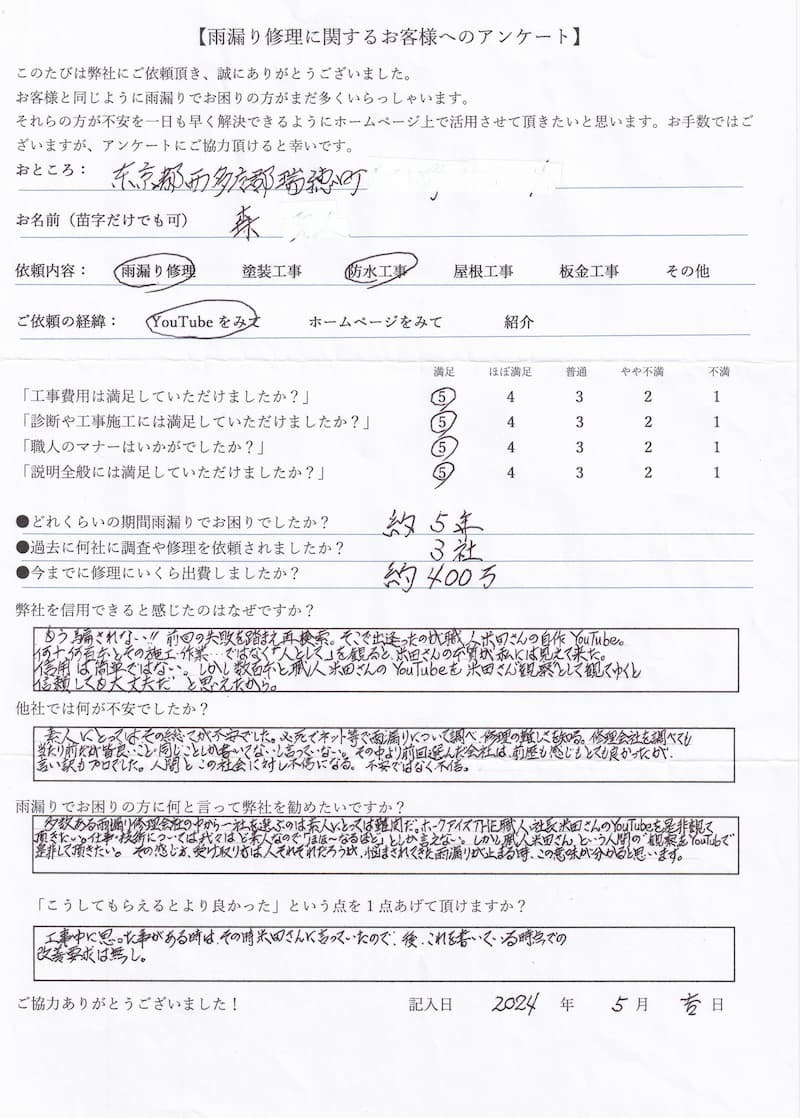 【雨漏り修理に関するお客様へのアンケート】
このたびは弊社にご依頼頂き、誠にありがとうございました。
お客様と同じように雨漏りでお困りの方がまだ多くいらっしゃいます。
それらの方が不安を一日も早く解決できるようにホームページ上で活用させて頂きたいと思います。お手数ではご
ざいますが、アンケートにご協力頂けると幸いです。
おところ： 東京都西多摩郡瑞穂町
お名前（苗字だけでも可） 森
依頼内容： 雨漏り修理 塗装工事 防水工事 屋根工事 板金工事 その他
ご依頼の経緯： YouTubeをみて ホームページをみて 紹介
満足 ほぼ満足 普通 やや不満 不満
「工事費用は満足していただけましたか？」 5 4 3 2 1
「診断や工事施工には満足していただけましたか？」 5 4 3 2 1
「職人のマナーはいかがでしたか？」 5 4 3 2 1
「説明全般には満足していただけましたか？」 5 4 3 2 1
●どれくらいの期間雨漏りでお困りでしたか？ 約5年
●過去に何社に調査や修理を依頼されましたか？ 3社
●今までに修理にいくら出費しましたか？ 約400万
弊社を信用できると感じたのはなぜですか？
もう騙されない!! 前回の失敗を踏まえ再検索。そこで出逢ったのが職人米田さんの自作YouTube。
何十何百本とその施工・作業…ではなく“人として”を観ると、米田さんの本質が私には見えて来た。
信用は簡単ではない。しかし数百本と職人米田さんのYouTubeを米田さん“観察”として観てゆくと
信頼しても大丈夫だ”と思えたから。
他社では何が不安でしたか？
素人にとってはその総てが不安でした。必死でネット等で雨漏りについて調べ、修理の難しさを知る。修理会社を調べても
当たり前だが皆良いこと・同じことしか書いてないし言っていない。その中より前回選んだ会社は、前歴も感じもとても良かったが
言い訳もプロでした。人間とこの社会に対し不信になる。不安ではなく不信。
雨漏りでお困りの方に何と言って弊社を勧めたいですか？
多数ある雨漏り修理会社の中から一社を選ぶのは素人にとっては難関だ。ホークアイズTHE職人社長米田さんのYouTubeを是非観て
頂きたい。仕事・技術については我々はど素人なので「ほほ〜なるほど」としか言えない。しかし職人米田さんという人間の“観察”をYouTubeで
是非して頂きたい。その感じ方、受け取り方は人それぞれだろうが、悩まされてきた雨漏りが止まる時、この意味が分かると思います。
「こうしてもらえるとより良かった」という点を1点あげて頂けますか？
工事中に思った事がある時は、その時米田さんに言っていたので、後、これを書いている時点での
改善要求は無し。
ご協力ありがとうございました！ 記入日 2024 年 5 月 吉 日